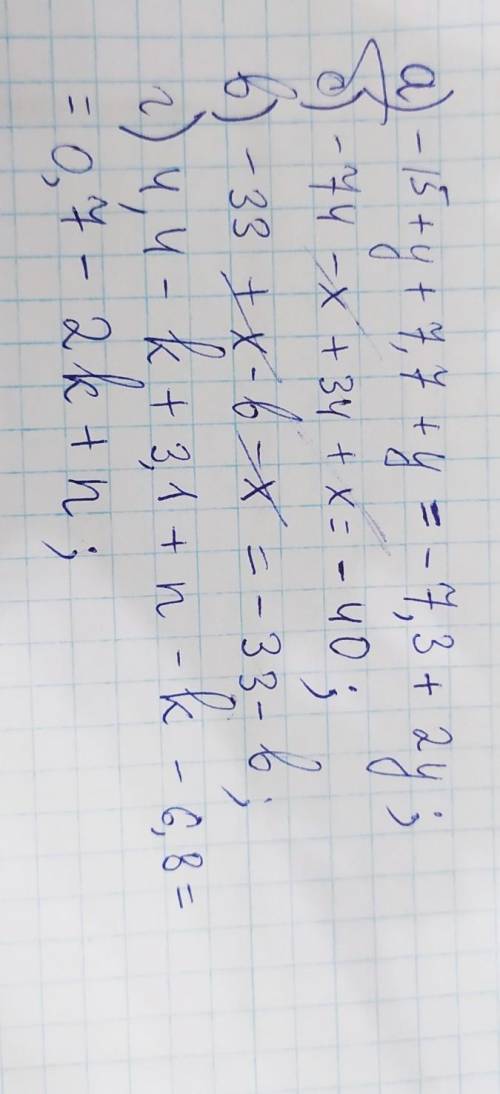 а) -15 + y + 7,7 + y = -7,3 + 2y;
б) -74 - x + 34 + x = -40;
в) -33 + x - b - x = -33 - b;
г) 4,4 - k + 3,1 + n - k - 6,8 =
= 0,7 - 2k + n;